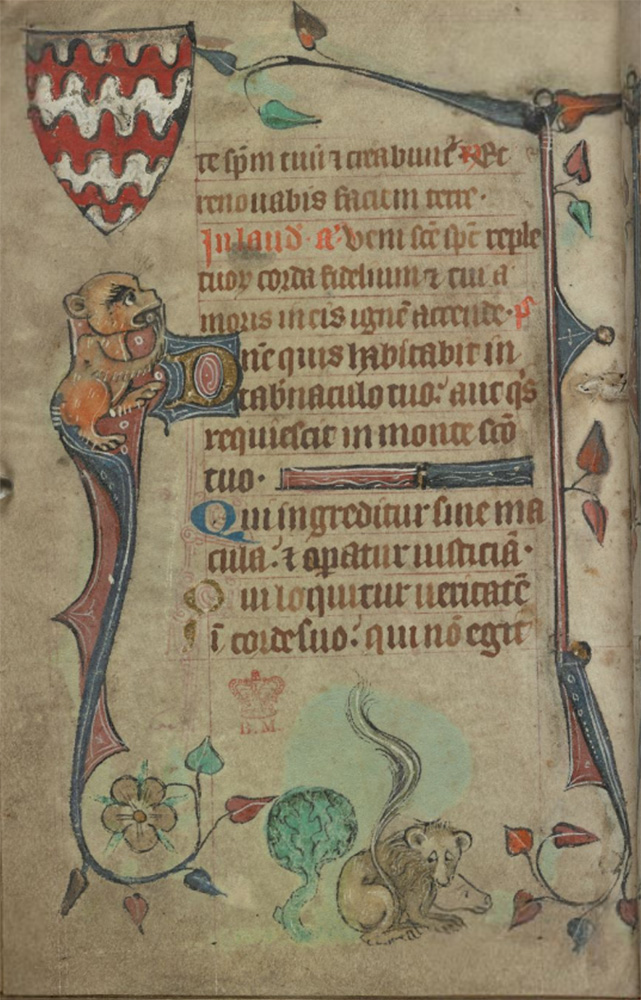 te sp̅m tuū ⁊ creabunt̃ R̃ Et
renouabis faciem terre·
In laud̕· a̕ Veni sc̅e sp̅c reple
tuoꝝ corda fidelium ⁊ tui a
moris in eis ignē accende· p̅s
Dn̅e quis habitabit in
tab̕naculo tuo: aut q̕s
requiescit in monte sc̅o
tuo·
Qui ingreditur sine ma
cula: ⁊ op̲atur iusticiā·
Qui loquitur ueritatē
ī corde suo: qui nō egit
B. M.